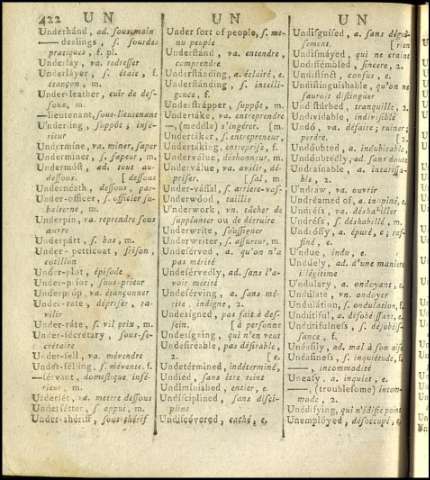 422 U N
U N
U N
Underhand, ad. sous-main
— dealings, s. sourdes
pratiques, f. pl.
Underlay, va. redresser
Underlayer, s. étaie, f.
étançon, m.
Under-leather, cuir de dessous, m.
—lieutenant, sous-lieutenant
Underling, suppôt, inférieur
Undermine, va. miner, saper
Underminer, s. sapeur, m.
Undermost, ad. tout au
dessous. [dessous
Underneath, dessous, par-
Under-officer, s. officier subalterne, m.
Underpin, va. reprendre sous
œuvre
Underpart, s. bas, m.
Under-petticoat, jupon,
cotillon
Under-plot, épisode
Under-prior, sous-prieur
Underprop, va. étançonner
Under-rate, dépriser, ravilir
Under-rate, s. vil prix, m.
Under-secretary, sous-secrétaire
Under-sell, va. mévendre
Under-selling, s. mévente, f.
—servant, domestique inférieur, m.
Underset, va. mettre dessous
Undersetter, s. appui, m.
Under-sheriff, sous-shérif
Under sort of people, s. menu peuple
Understand, va. entendre,
comprendre
Understanding, a. éclairé, e.
Understanding, s. intelligence, f.
Understrapper, suppôt, m.
Undertake, va. entreprendre
— (meddle) s'ingérer. [m.
Undertaker, s. entrepreneur,
Undertaking, entreprise, f.
Undervalue, deshonneur, m.
Undervalue, va. avilir, dépriser.
Under-vassal, s. arriere-vassal, m.
Underwood, taillis
Underwork, vn. tâcher de
supplanter ou de détruire
Underwrite, soussigner
Underwriter, s. assureur, m.
Undeserved, a. qu'on n'a
pas mérité
Undeservedly, ad. sans l'avoir mérité
Undeserving, a. sans mérite, indigne, 2.
Undesigned, pas fait à dessein. [à personne
Undesigning, qui n'en veut
Undesireable, pas désirable,
2. [e.
Undetermined, indéterminé,
Undied, sans être teint
Undiminished, entier, e.
Undisciplined, sans discipline
Undiscovered, caché, e.
Undisguised, a. sans déguisement. [rien
Undismayed, qui ne craint
Undissembled, sincere, 2.
Undistinct, confus, e.
Undistinguishable, qu'on ne
sauroit distinguer
Undisturbed, tranquille, 2.
Undividable, indivisible
Undo, va. défaire; ruiner;
perdre,
Undoubted, a. indubitable,
Undoubtedly, ad. sans doute
Undrainable, a. intarissable, 2.
Undraw, va. ouvrir
Undreamed of, a. inopiné, e.
Undress, va. déshabiller
Undress, s. déshabillé, m.
Undrossy, a. épuré, e; raffiné, e.
Undue, indu, e.
Unduly, ad. d'une maniere
illégitime
Undulary, a. ondoyant, e.
Undulate, vn. ondoyer
Undulation, s. ondulation, f.
Undutiful, a. désobéissant, e.
Undutifulness, s. désobéissance, f.
Uneasily, ad. mal à son aise
Uneasiness, s. inquiétude, f.
—, incommodité
Uneasy, a. inquiet, e.
—, (troublesome) incommode, 2.
Unedifying, qui n'édifie point
Unemployed, désoccupé, e.